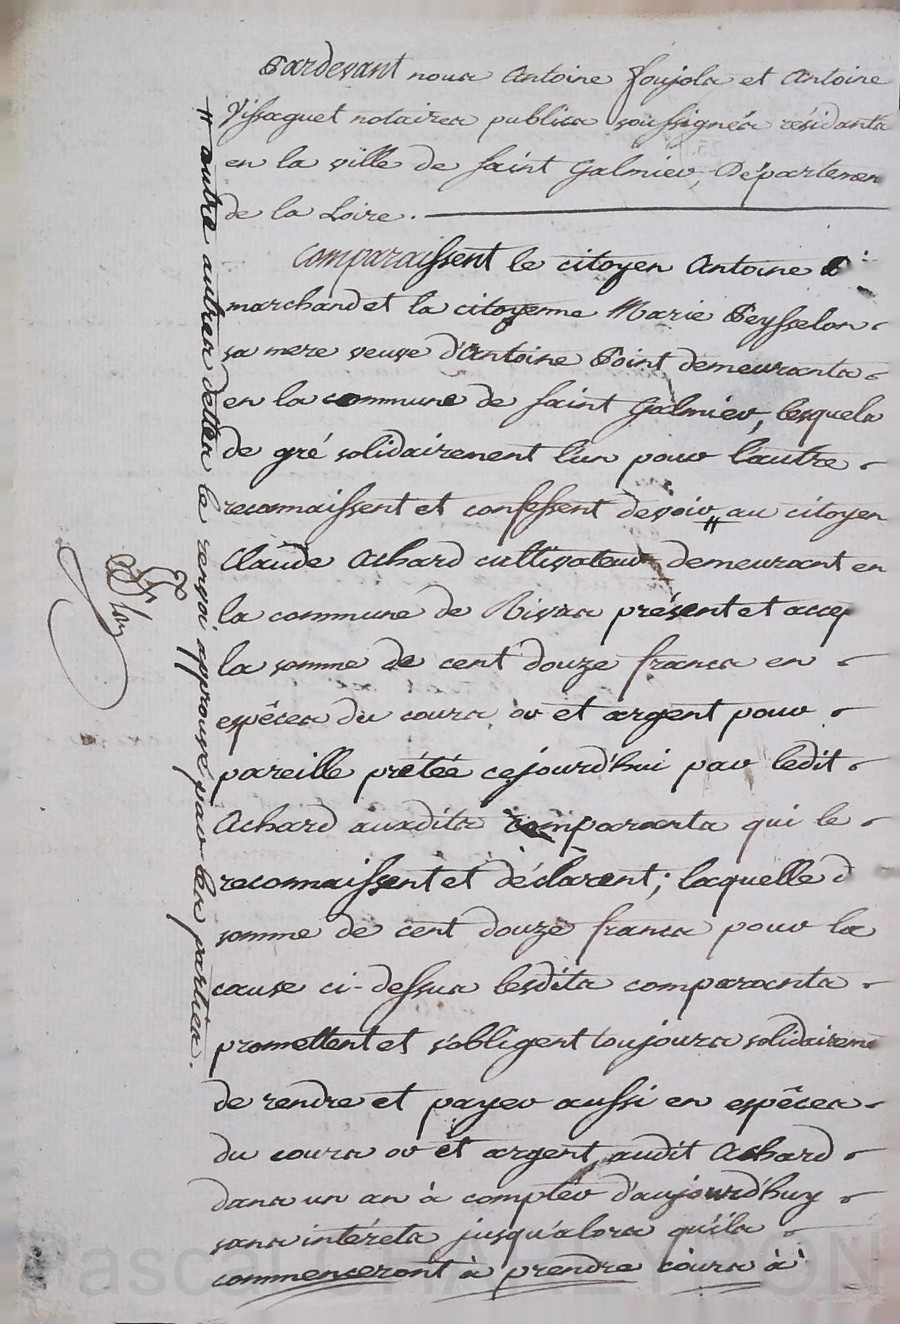 Pardevant nous Antoine Foujols et Antoine
Vissaguet notaires publics soussignés résidants
en la ville de Saint Galmier, Départemen
de la Loire.
Comparaissent le citoyen Antoine
marchand et la citoyenne Marie Peysselon
sa mere veuve d'Antoine Point demeurants
en la commune de Saint Galmier, lesquels
de gré solidairement l'un pour l'autre
reconnaissent et confessent devoir // au citoyen
Claude Achard cultivateur demeurant en
la commune de Rivas présent et accep
la somme de cent douze francs en
espêces du cours or et argent pour
pareille prétée cejourd'hui par ledit
Achard auxdits comparants qui le
reconnaissent et déclarent; laquelle d
somme de cent douze francs pour la
cause ci-dessus lesdits comparants
promettent et s'obligent toujours solidaireme
de rendre et payer aussi en espêces
du cours or et argent audit Achard
dans un an à compter d'aujourd'huy
sans intérets jusqu'alors qu'ils
commenceront à prendre cours à
// outre autres dettes le renvoi approuvé par les parties.
Pascal CHAPEYRON